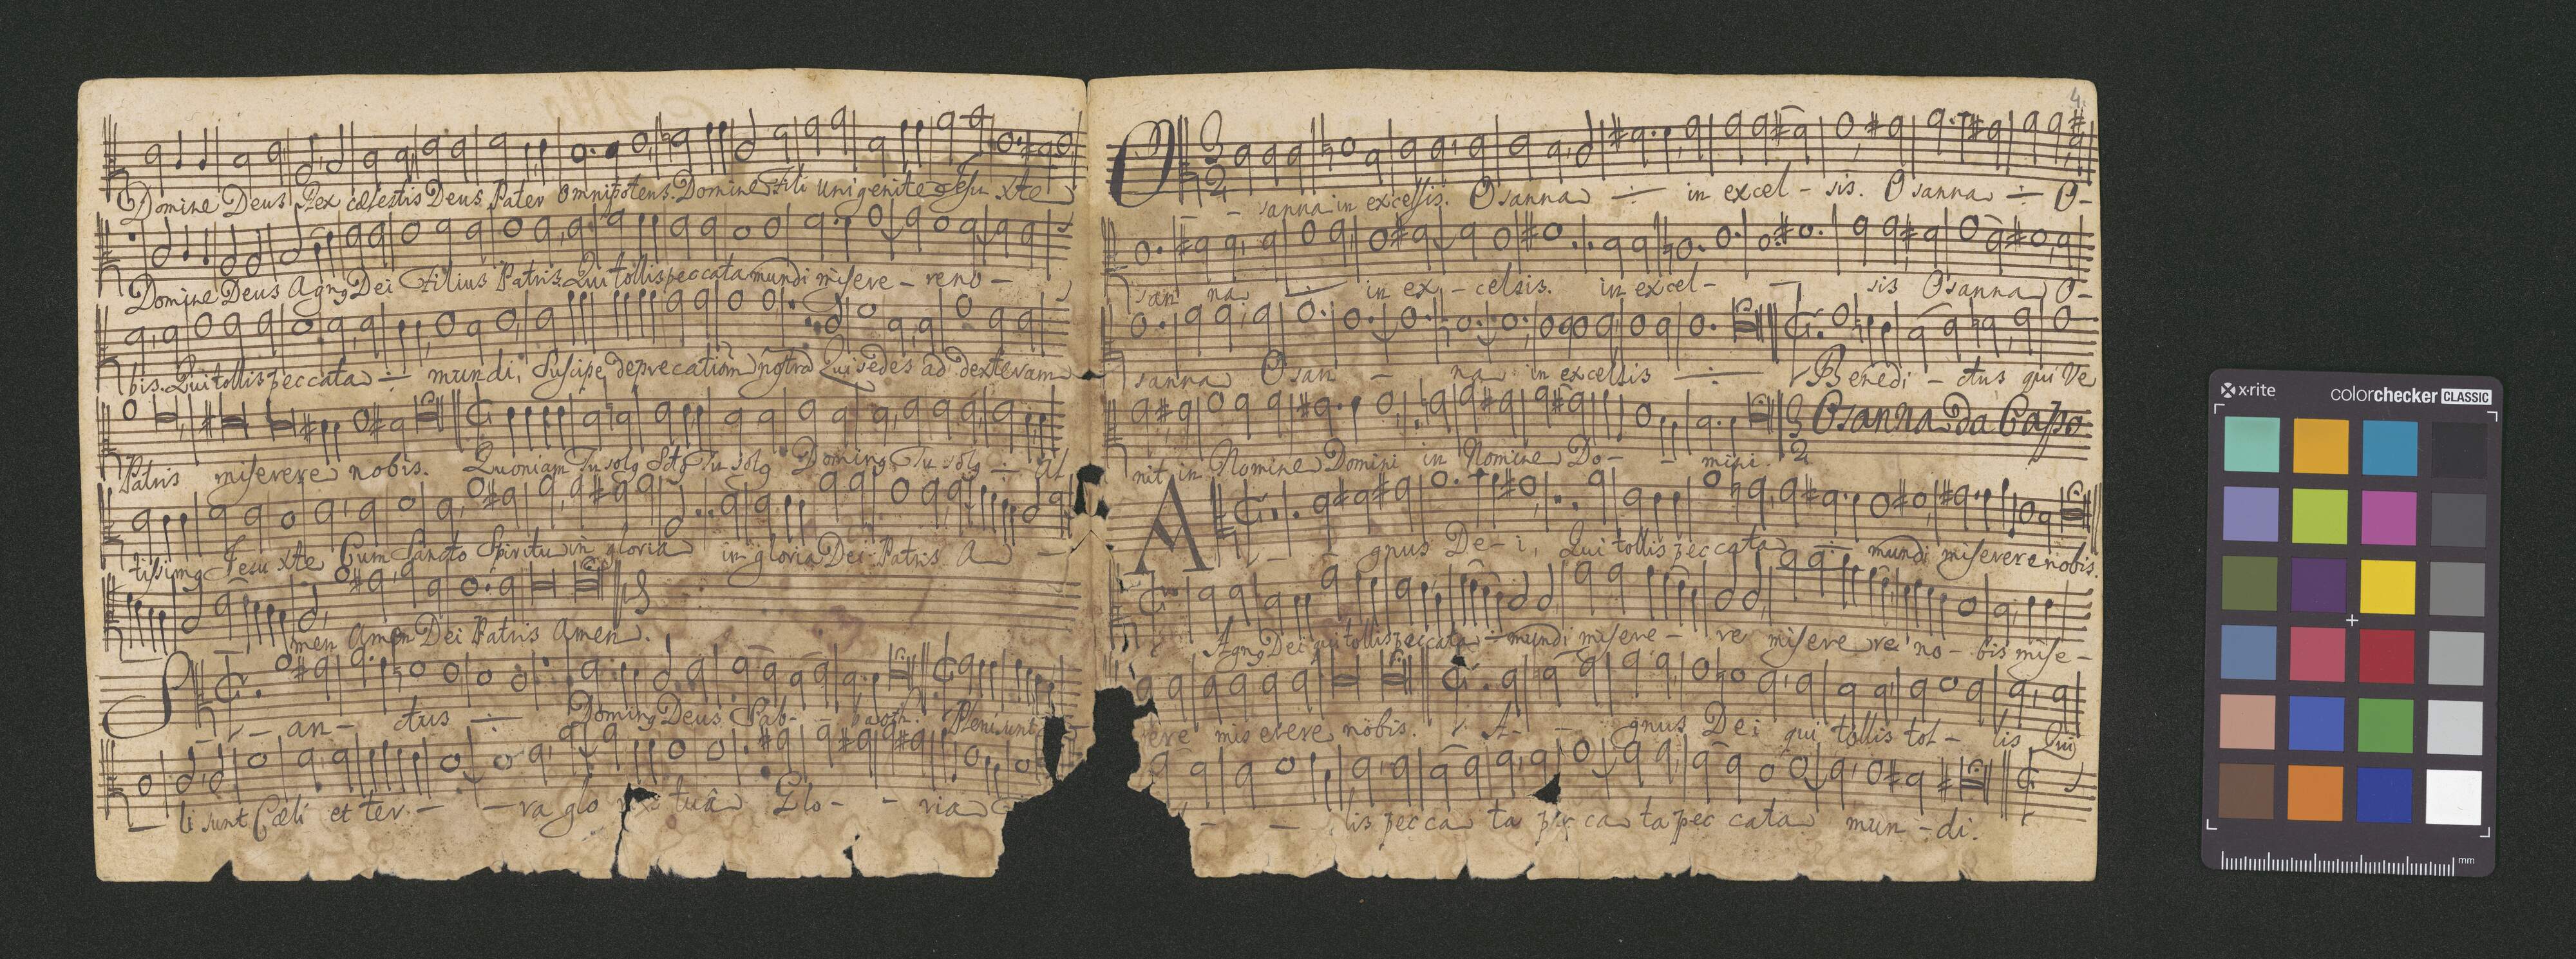 Domine Deus Rex cœlestis Deus Pater omnipotens. Domine Fili unigenite Jesu xte
Domine Deus Agn9 Dei Filius Patris. Qui tollis peccata mundi misere - re no -
bis. Qui tollis peccata ÷ mundi, Suscipe deprecationē nostrā Qui sedes ad dexteram
Patris miserere nobis. Quoniam Tu sol9 Tu sol9 Domin9 Tu sol9 ÷ Al
tissim9 Jesu xte Cum Sancto Spiritu in gloria in gloria Dei Patris A -
men Amen Dei Patris Amen.
S - - an - ctus ÷ Domin9 Deus Sab - - baoth. Pleni sunt
li sunt Cæli et ter - - ra glo tuâ Glo - - ria
4.
O - - sanna in excelsis. Osanna ÷ in excel - sis. Osanna ÷ O -
san na ÷ in ex - celsis. in excel - sis Osanna O -
sanna Osan - na in excelsis ÷ Benedi - ctus qui Ve
nit in Nomine Domini in Nomine Do - - mini. 3 2 Osanna Da Capo
A - - gnus De - i, Qui tollis peccata ÷ mundi miserere nobis.
Agn9 Dei qui tollis peccata ÷ mundi misere - re misere re no - bis mise -
rere mis erere nobis. A - - gnus Dei qui tollis tol - lis Qui
- - lis pecca ta pec ca ta pec cata mun - di.
x·rite
colorchecker CLASSIC
mm